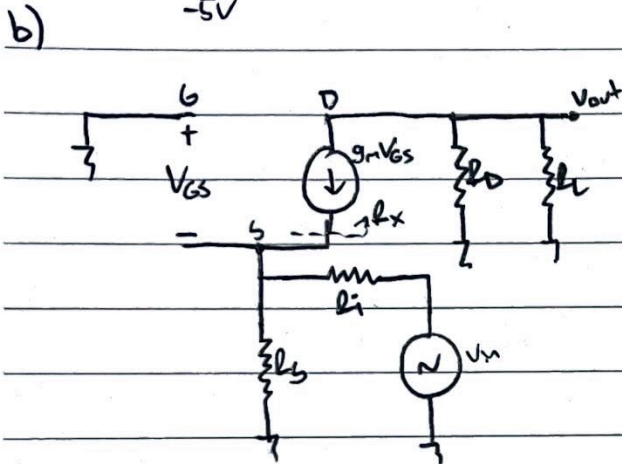 -5V
b)
G D Vout
+ gmVGS
VGS RD RL
- S Rx
Ri
RS Vin